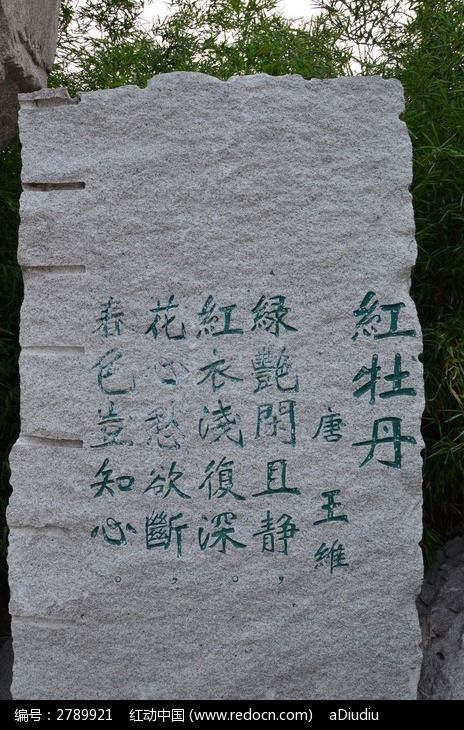 紅牡丹
唐 王維
緑艷閑且静，
紅衣淺復深。
花心愁欲斷，
春色豈知心。
编号：2789921 红动中国 (www.redocn.com) aDiudiu